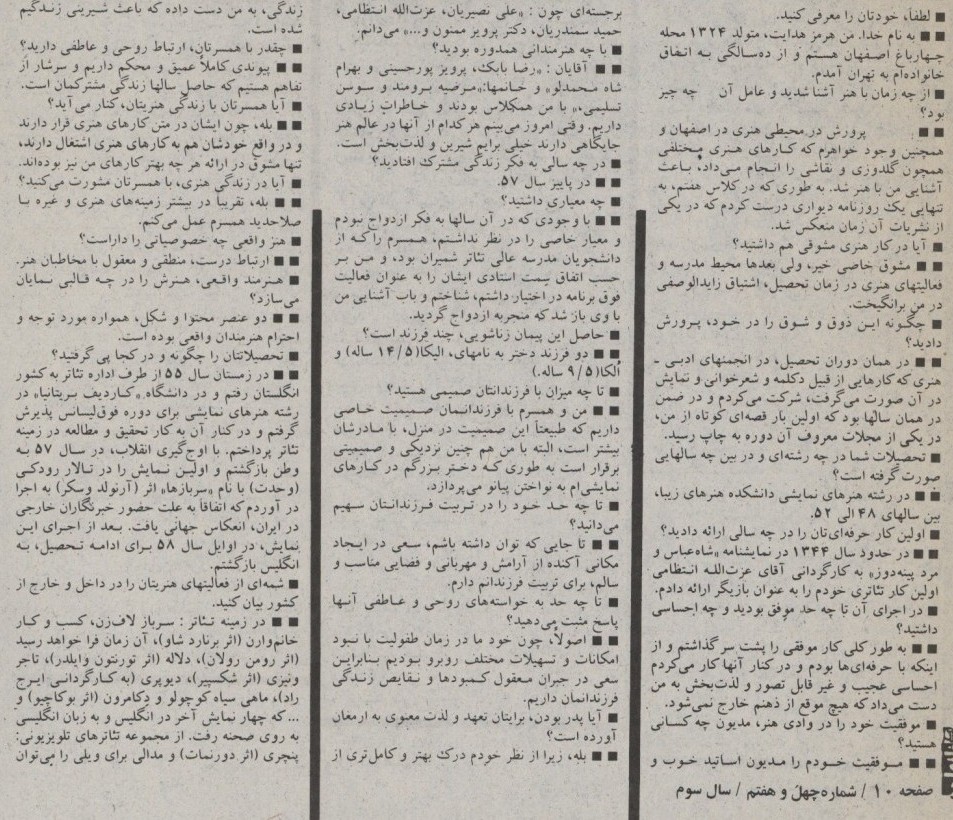 ■ لطفاً، خودتان را معرفی کنید.
■ ■ به نام خدا. من هرمز هدایت، متولد ۱۳۲۴ محله
چهارباغ اصفهان هستم و از ده‌سالگی به اتفاق
خانواده‌ام به تهران آمدم.
■ از چه زمان با هنر آشنا شدید و عامل آن چه چیز
بود؟
■ ■ پرورش در محیطی هنری در اصفهان و
همچنین وجود خواهرم که کارهای هنری مختلفی
همچون گلدوزی و نقاشی را انجام می‌داد، باعث
آشنایی من با هنر شد. به طوری که در کلاس هفتم، به
تنهایی یک روزنامه دیواری درست کردم که در یکی
از نشریات آن زمان منعکس شد.
■ آیا در کار هنری مشوقی هم داشتید؟
■ ■ مشوق خاصی خیر، ولی بعدها محیط مدرسه و
فعالیتهای هنری در زمان تحصیل، اشتیاق زایدالوصفی
در من برانگیخت.
■ چگونه این ذوق و شوق را در خود، پرورش
دادید؟
■ ■ در همان دوران تحصیل، در انجمنهای ادبی ـ
هنری که کارهایی از قبیل دکلمه و شعرخوانی و نمایش
در آن صورت می‌گرفت، شرکت می‌کردم و در ضمن
در همان سالها بود که اولین بار قصه‌ای کوتاه از من،
در یکی از مجلات معروف آن دوره به چاپ رسید.
■ تحصیلات شما در چه رشته‌ای و در بین چه سالهایی
صورت گرفته است؟
■ ■ در رشته هنرهای نمایشی دانشکده هنرهای زیبا،
بین سالهای ۴۸ الی ۵۲.
■ اولین کار حرفه‌ای‌تان را در چه سالی ارائه دادید؟
■ ■ در حدود سال ۱۳۴۴ در نمایشنامه «شاه‌عباس و
مرد پینه‌دوز» به کارگردانی آقای عزت‌الله انتظامی
اولین کار تئاتری خودم را به عنوان بازیگر ارائه دادم.
■ در اجرای آن تا چه حد موفق بودید و چه احساسی
داشتید؟
■ ■ به طور کلی کار موفقی را پشت سر گذاشتم و از
اینکه با حرفه‌ایها بودم و در کنار آنها کار می‌کردم
احساسی عجیب و غیر قابل تصور و لذت‌بخش به من
دست می‌داد که هیچ موقع از ذهنم خارج نمی‌شود.
■ موفقیت خود را در وادی هنر، مدیون چه کسانی
هستید؟
■ ■ موفقیت خودم را مدیون اساتید خوب و
صفحه ۱۰ / شماره چهل و هفتم / سال سوم
برجسته‌ای چون : «علی نصیریان، عزت‌الله انتظامی،
حمید سمندریان، دکتر پرویز ممنون و...» می‌دانم.
■ با چه هنرمندانی همدوره بودید؟
■ ■ آقایان : «رضا بابک، پرویز پورحسینی و بهرام
شاه محمدلو» و خانمها: «مرضیه برومند و سوسن
تسلیمی،» با من همکلاس بودند و خاطرات زیادی
داریم. وقتی امروز می‌بینم هر کدام از آنها در عالم هنر
جایگاهی دارند خیلی برایم شیرین و لذت‌بخش است.
■ در چه سالی به فکر زندگی مشترک افتادید؟
■ ■ در پاییز سال ۵۷.
■ چه معیاری داشتید؟
■ ■ با وجودی که در آن سالها به فکر ازدواج نبودم
و معیار خاصی را در نظر نداشتم، همسرم را که از
دانشجویان مدرسه عالی تئاتر شمیران بود، و من بر
حسب اتفاق سمت استادی ایشان را به عنوان فعالیت
فوق برنامه در اختیار داشتم، شناختم و باب آشنایی من
با وی باز شد که منجربه ازدواج گردید.
■ حاصل این پیمان زناشویی، چند فرزند است؟
■ ■ دو فرزند دختر به نامهای، الیکا (۱۴/۵ ساله) و
اُلکا (۹/۵ ساله.)
■ تا چه میزان با فرزندانتان صمیمی هستید؟
■ ■ من و همسرم با فرزندانمان صمیمیت خاصی
داریم که طبیعتاً این صمیمیت در منزل، با مادرشان
بیشتر است، البته با من هم چنین نزدیکی و صمیمیتی
برقرار است به طوری که دختر بزرگم در کارهای
نمایشی‌ام به نواختن پیانو می‌پردازد.
■ تا چه حد خود را در تربیت فرزندانتان سهیم
می‌دانید؟
■ ■ تا جایی که توان داشته باشم، سعی در ایجاد
مکانی آکنده از آرامش و مهربانی و فضایی مناسب و
سالم، برای تربیت فرزندانم دارم.
■ تا چه حد به خواسته‌های روحی و عاطفی آنها
پاسخ مثبت می‌دهید؟
■ ■ اصولاً، چون خود ما در زمان طفولیت با نبود
امکانات و تسهیلات مختلف روبرو بودیم بنابراین
سعی در جبران معقول کمبودها و نقایص زندگی
فرزندانمان داریم.
■ آیا پدر بودن، برایتان تعهد و لذت معنوی به ارمغان
آورده است؟
■ ■ بله، زیرا از نظر خودم درک بهتر و کامل‌تری از
زندگی، به من دست داده که باعث شیرینی زندگیم
شده است.
■ چقدر با همسرتان، ارتباط روحی و عاطفی دارید؟
■ ■ پیوندی کاملاً عمیق و محکم داریم و سرشار از
تفاهم هستیم که حاصل سالها زندگی مشترکمان است.
■ آیا همسرتان با زندگی هنریتان، کنار می‌آید؟
■ ■ بله، چون ایشان در متن کارهای هنری قرار دارند
و در واقع خودشان هم به کارهای هنری اشتغال دارند،
تنها مشوق در ارائه هر چه بهتر کارهای من نیز بوده‌اند.
■ آیا در زندگی هنری، با همسرتان مشورت می‌کنید؟
■ ■ بله، تقریباً در بیشتر زمینه‌های هنری و غیره با
صلاحدید همسرم عمل می‌کنم.
■ هنر واقعی چه خصوصیاتی را داراست؟
■ ■ ارتباط درست، منطقی و معقول با مخاطبان هنر.
■ هنرمند واقعی، هنرش را در چه قالبی نمایان
می‌سازد؟
■ ■ دو عنصر محتوا و شکل، همواره مورد توجه و
احترام هنرمندان واقعی بوده است.
■ تحصیلاتتان را چگونه و در کجا پی گرفتید؟
■ ■ در زمستان سال ۵۵ از طرف اداره تئاتر به کشور
انگلستان رفتم و در دانشگاه «کاردیف بریتانیا» در
رشته هنرهای نمایشی برای دوره فوق‌لیسانس پذیرش
گرفتم و در کنار آن به کار تحقیق و مطالعه در زمینه
تئاتر پرداختم. با اوج‌گیری انقلاب، در سال ۵۷ به
وطن بازگشتم و اولین نمایش را در تالار رودکی
(وحدت) با نام «سربازها» اثر (آرنولد وسکر) به اجرا
در آوردم که اتفاقاً به علت حضور خبرنگاران خارجی
در ایران، انعکاس جهانی یافت. بعد از اجرای این
نمایش، در اوایل سال ۵۸ برای ادامه تحصیل، به
انگلیس بازگشتم.
■ شمه‌ای از فعالیتهای هنریتان را در داخل و خارج از
کشور بیان کنید.
■ ■ در زمینه تئاتر : سرباز لاف‌زن، کسب و کار
خانم‌وارن (اثر برنارد شاو)، آن زمان فرا خواهد رسید
(اثر رومن رولان)، دلاله (اثر تورنتون وایلدر)، تاجر
ونیزی (اثر شکسپیر)، دیوپری (به کارگردانی ایرج
راد)، ماهی سیاه کوچولو و دکامرون (اثر بوکاچیو) و
...که چهار نمایش آخر در انگلیس و به زبان انگلیسی
به روی صحنه رفت. از مجموعه تئاترهای تلویزیونی:
پنچری (اثر دورنمات) و مدالی برای ویلی را می‌توان